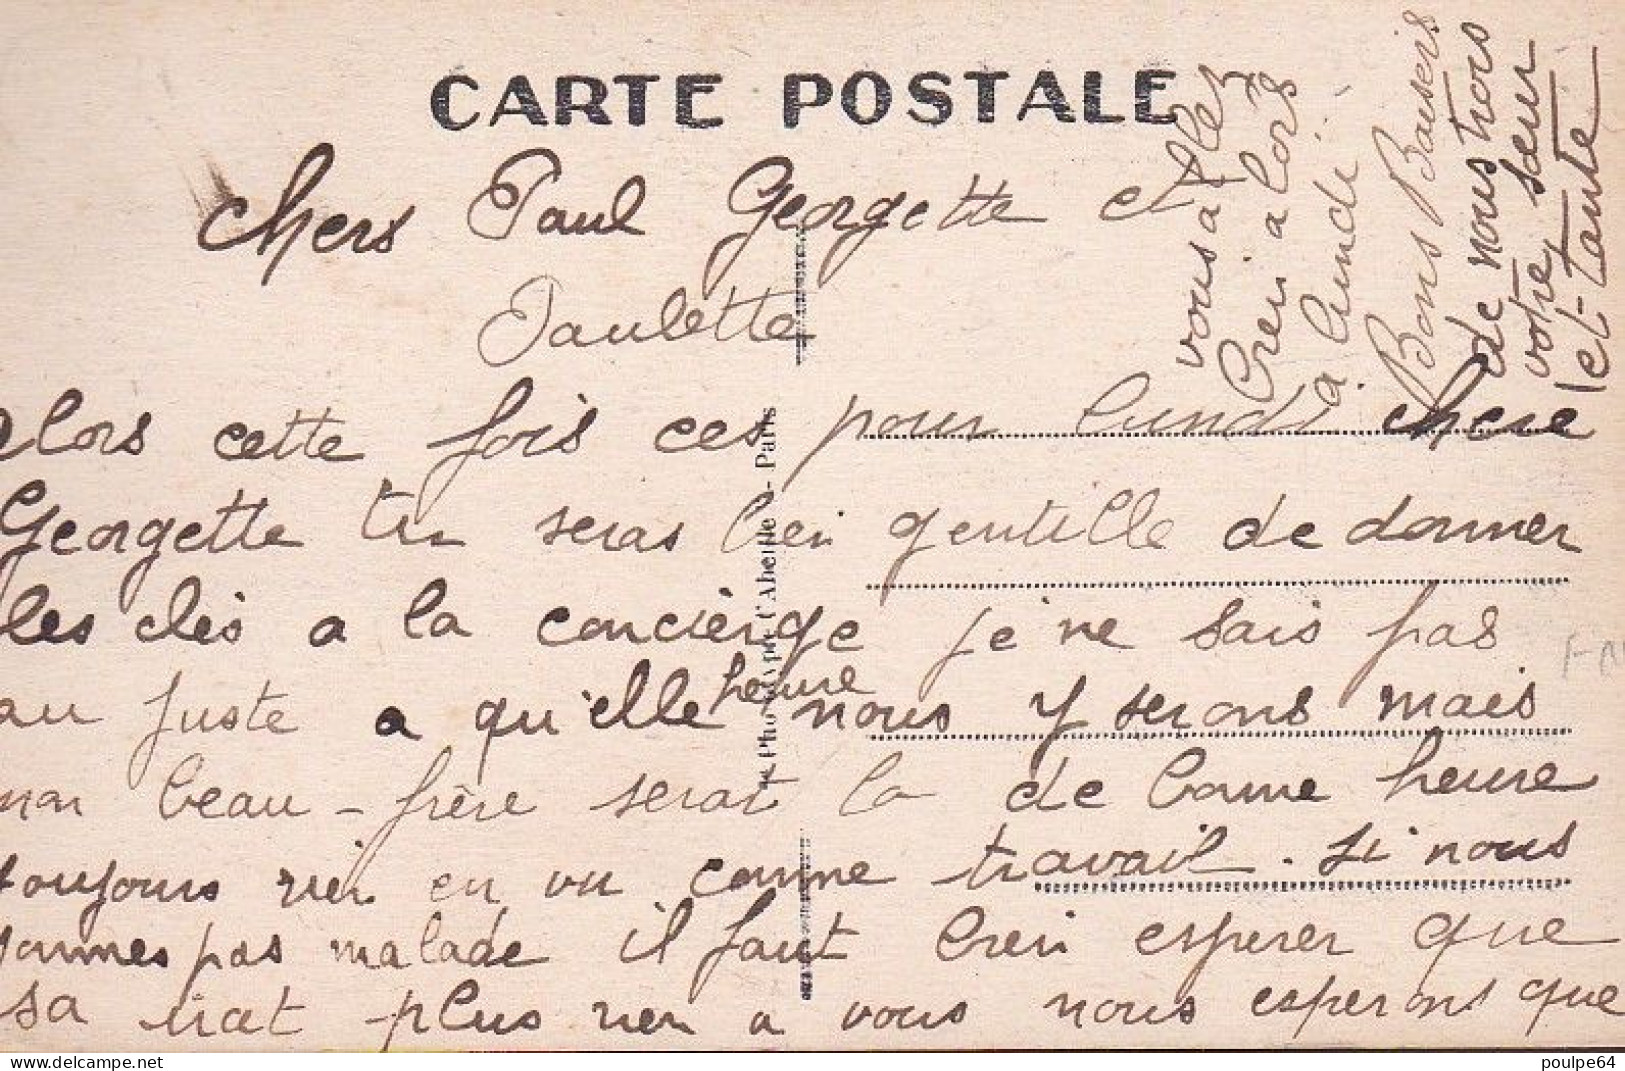 CARTE POSTALE
chers Paul Georgette et
Paulette
alors cette fois ces pour lundi chere
Georgette tu seras bien gentille de donner
les clés a la concièrge je ne sais pas
au juste a qu'elle heure nous y serons mais
mon beau-frère serat la de bonne heure
toujours rien en vu comme travail. si nous
sommes pas malade il faut bien esperer que
sa irat plus rien a vous nous esperons que
vous allez
bien alors
a lundi
Bons Baisers
de nous trois
votre sœur
et tante
- Paris
poulpe64